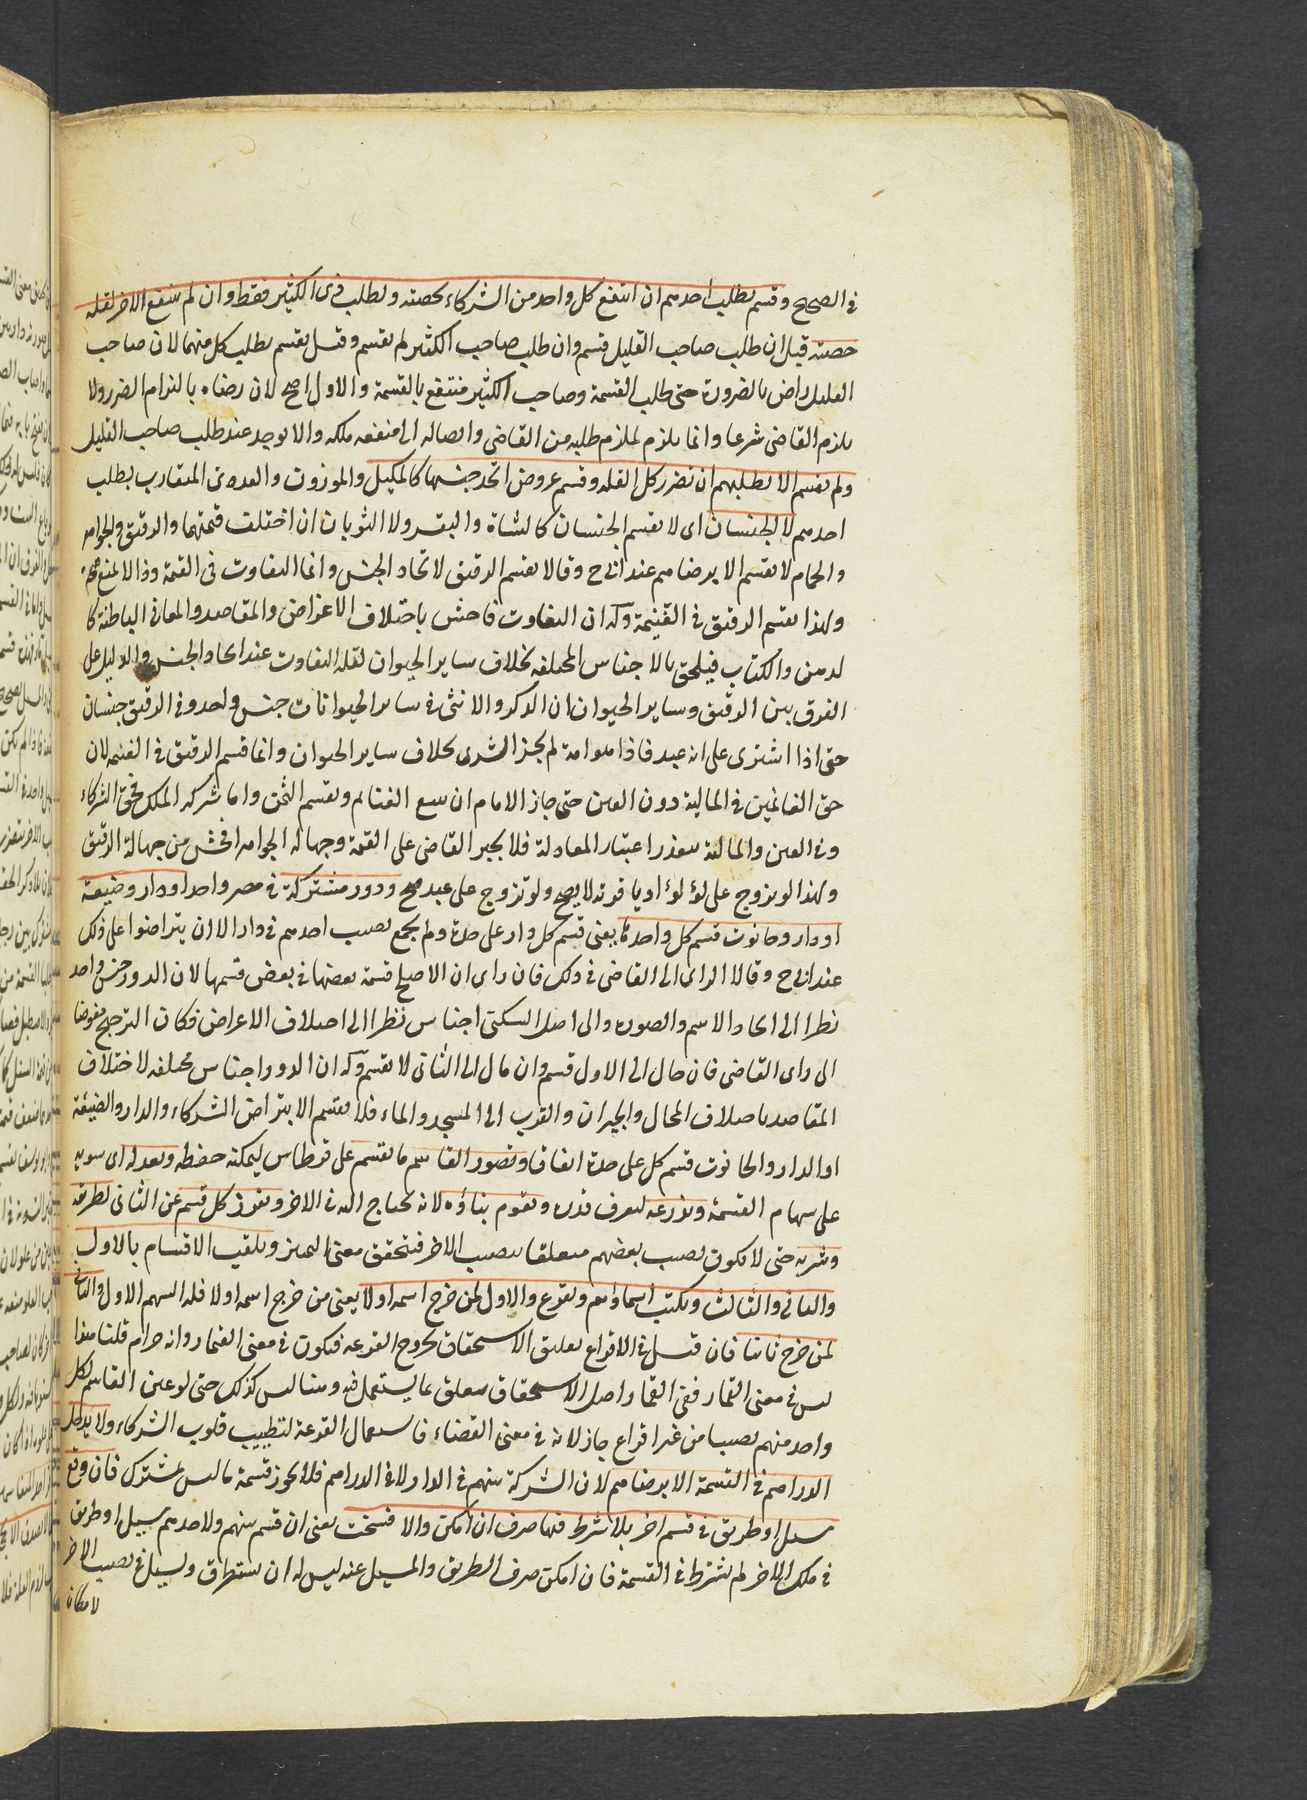 في الصحيح وقسم بطلب احدهم ان انتفع كل واحد من الشركاء بحصته وبطلب ذي الكثير فقط وان لم ينتفع الاخر لقلة
حصته قيل ان طلب صاحب القليل قسم وان طلب صاحب الكثير لم يقسم وقيل يقسم بطلب كل منهما لان صاحب
القليل راض بالضرورة حتى طلب القسمة وصاحب الكثير منتفع بالقسمة والاول اصح لان رضاه بالتزام الضرر ولا
يلزم القاضي شرعا وانما يلزم لملزم طلبه من القاضي وايصاله الى منفعة ملكه والا يوجد عند طلب صاحب القليل
ولم يقسم الا بطلبهم ان تضرر كل القلة وقسم عروض اتحد جنسها كالمكيل والموزون والعددي المتقارب بطلب
احدهم لا الجنسان اى لا يقسم الجنسان كالشاة والبقر ولا الثوبان ان اختلت قيمتهما والرقيق والجواهر
والحمام لا يقسم الا برضاهم عند ابي ح وقالا يقسم الرقيق لاتحاد الجنس وانما التفاوت في القيمة وذا لا يمنع صحة
ولهذا يقسم الرقيق في الغنيمة وله ان التفاوت فاحش باختلاف الاغراض والمقاصد والمعاني الباطنة كا
لدهن والكتاب فيلحق بالاجناس المختلفة بخلاف ساير الحيوان لقلة التفاوت عند اتحاد الجنس والدليل على
الفرق بين الرقيق وساير الحيوان ان الذكر والانثى في ساير الحيوانات جنس واحد وفي الرقيق جنسان
حتى اذا اشترى على انه عبد فاذا هو امة لم يجز الشرى بخلاف ساير الحيوان وانما قسم الرقيق في الغنيمة لان
حق الغانمين في المالية دون العين حتى جاز للامام ان يبيع الغنايم ويقسم الثمن واما شركة الملك فحق الشركاء
في العين والمالية يتعذر اعتبار المعادلة فلا يجبر القاضي على القيمة وجهالة الجواهر افحش من جهالة الرقيق
ولهذا لو تزوج على لؤلؤ او ياقوتة لا يصح ولو تزوج على عبد صح ودور مشتركة في مصر واحد او دار وضيعة
او دار وحانوت قسم كل واحدة يعني قسم كل دار على حدة ولم يجمع نصيب احدهم في دار الا ان يتراضوا على ذلك
عند ابي ح وقالا الراى الى القاضي في ذلك فان راى ان الاصلح قسمة بعضها في بعض قسمها لان الدور جنس واحد
نظرا الى اتحاد الاسم والصورة والى اصل السكنى اجناس نظرا الى اختلاف الاغراض فكان الترجيح مفوضا
الى راى القاضي فان مال الى الاول قسم وان مال الى الثاني لا يقسم وله ان الدور اجناس مختلفة لاختلاف
المقاصد باختلاف المحال والجيران والقرب الى المسجد والماء فلا يقسم الا بتراض الشركاء والدار والضيعة
او الدار والحانوت قسم كل على حدة اتفاقا ويصور القاسم ما يقسم على قرطاس ليمكنه حفظه ويعدله اى يسويه
على سهام القسمة ويذرعه ليعرف قدره ويقوم بناؤه لانه يحتاج اليه في الاخر ويفرز كل قسم عن الثاني بطريقه
وشربه حتى لا يكون نصيب بعضهم متعلقا بنصيب الاخر فيتحقق معنى التميز ويلقب الاقسام بالاول
والثاني والثالث ويكتب اسماءهم ويقرع والاول لمن خرج اسمه اولا يعني من خرج اسمه اولا فله السهم الاول والثاني
لمن خرج ثانيا فان قيل في الاقراع تعليق الاستحقاق بخروج القرعة فيكون في معنى القمار وانه حرام قلنا هذا
ليس في معنى القمار ففي القمار اصل الاستحقاق يتعلق بما يستعمل فيه وهنا ليس كذلك حتى لو عين القاسم لكل
واحد منهم نصيبا من غير اقراع جاز لانه في معنى القضاء فاستعمال القرعة لتطييب قلوب الشركاء ولا يدخل
الدراهم في القسمة الا برضاهم لان الشركة بينهم في الدار لا في الدراهم فلا يجوز قسمة ما ليس بمشترك فان وقع
مسيل او طريق في قسم اخر بلا شرط فيها صرف ان امكن والا فسخت يعني ان قسم بينهم ولاحدهم مسيل او طريق
في ملك الاخر لم يشترط في القسمة فان امكن صرف الطريق والمسيل عنه ليس له ان يستطرق ويسيل في نصيب الاخر
لامكان